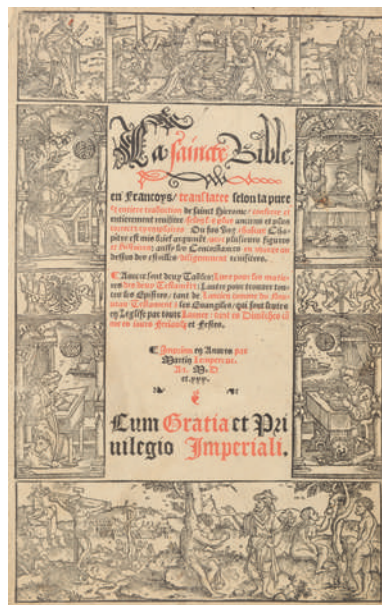 La saincte Bible.
en Francoys/ translatee selon la pure
et entiere traduction de sainct Hierome/ conferee et
entierement revisitee selon les plus anciens et plus
correctz exemplaires. Ou sus ung chascun Cha-
pitre est mis brief argument, avec plusieurs figures
et Histoires: aussy les Concordances en marge au
dessus des estoilles, diligemment revisitees.
Avec ce sont deux Tables: Lune pour les matie-
res des deux Testamentz: Lautre pour trouver tou-
tes les Epistres, tant de Lancien comme du Nou-
veau Testament: les Euangiles: qui sont leutes
en Leglise par toute Lannee: tant es Dimenches
es jours Feriaulx et Festes.
Imprime en Anvers par
Martin Lempereur.
An. M. D.
et. xxx.
Cum Gratia et Pri
uilegio Imperiali.